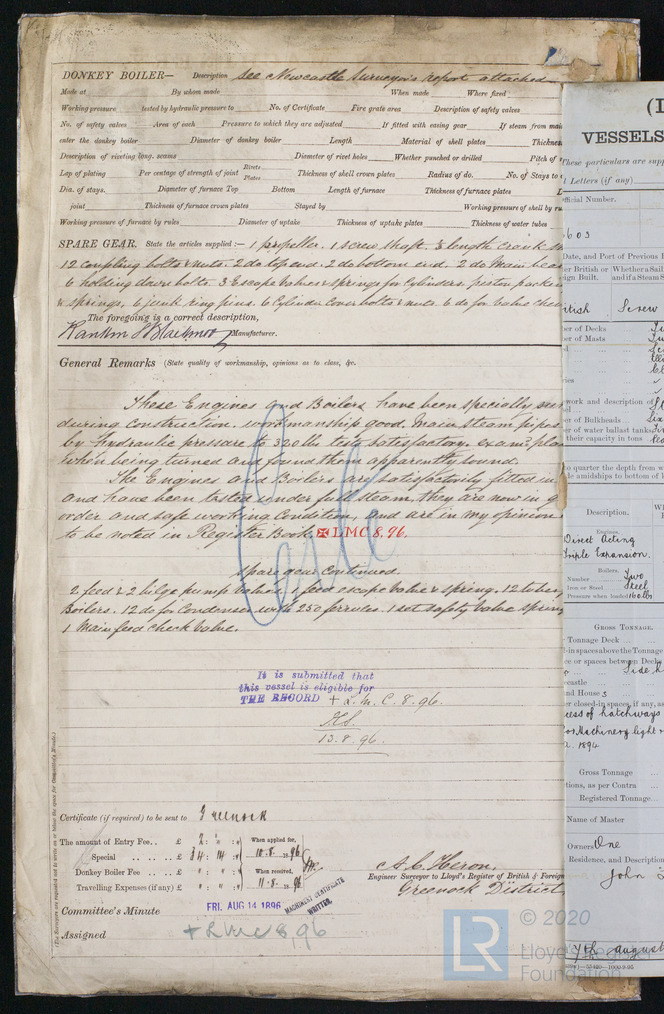 DONKEY BOILER— Description see Newcastle Surveyor's report attached
Made at By whom made When made Where fixed
Working pressure tested by hydraulic pressure to No. of Certificate Fire grate area Description of safety valves
No. of safety valves Area of each Pressure to which they are adjusted If fitted with easing gear If steam from mai
enter the donkey boiler Diameter of donkey boiler Length Material of shell plates Thickness
Description of riveting long. seams Diameter of rivet holes Whether punched or drilled Pitch of
Lap of plating Per centage of strength of joint Rivets Plates Thickness of shell crown plates Radius of do. No. of Stays to
Dia. of stays. Diameter of furnace Top Bottom Length of furnace Thickness of furnace plates
joint Thickness of furnace crown plates Stayed by Working pressure of shell by ru
Working pressure of furnace by rules Diameter of uptake Thickness of uptake plates Thickness of water tubes
SPARE GEAR. State the articles supplied:— 1 propeller. 1 screw shaft. 3/4 length crank
12 coupling bolts & nuts. 2 do top end. 2 do bottom end. 2 do Main bea
6 holding down bolts. 3 Escape valves & springs for Cylinders. piston packin
& springs, 6 junk ring pins. 6 Cylinder Cover bolts & nuts. 6 do for valve ches
The foregoing is a correct description,
Rankin & Blackmore Manufacturer.
General Remarks (State quality of workmanship, opinions as to class, &c.
These Engines and Boilers have been specially
during construction. workmanship good. Main steam pipes
by hydraulic pressure to 320 lbs tests satisfactory. exam
when being turned and found them apparently sound.
The Engines and Boilers are satisfactorily fitted in
and have been tested under full steam, they are now in g
order and safe working condition, and are in my opinion
to be noted in Register Book ✠ LMC 8.96.
Carlo
Spare gear continued.
2 feed & 2 bilge pump valves, 1 feed escape valve & spring. 12 tubes
Boilers. 12 do for Condenser with 250 ferrules. 1 set safety valve spring
1 Main feed check valve.
It is submitted that
this vessel is eligible for
THE RECORD + L.M.C. 8.96.
13.8.96.
Certificate (if required) to be sent to Greenock
The amount of Entry Fee.. £ 2 : " : " When applied for,
Special .. .. .. £ 34 : 14 : " 10.8.1896
Donkey Boiler Fee .. £ " : " : " When received,
Travelling Expenses (if any) £ " : " : " 11.8.1896
A. C. Heron.
Engineer Surveyor to Lloyd's Register of British & Foreign
Greenock District
Committee's Minute FRI. AUG 14 1896
MACHINERY CERTIFICATE
WRITTEN.
Assigned + LMC 8,96
VESSELS
These particulars are supp
Letters (if any)
fficial Number.
Date, and Port of Previous
er British or
ign Built.
Whether a Sail
and if a Steam S
itish Screw
ber of Decks
er of Masts
work and description of
er of Bulkheads
er of water ballast tanks
their capacity in tons
to quarter the depth from w
le amidships to bottom of
Description.
Engines.
Direct Acting
Triple Expansion.
Boilers.
Number Two
Iron or Steel Steel
Pressure when loaded 160 lbs
GROSS TONNAGE.
Tonnage Deck
-in spaces above the Tonnage
ce or spaces between Decks
castle
nd House s
er closed-in spaces, if any, as
cess of hatchways
or Machinery light
1894
Gross Tonnage
tions, as per Contra
Registered Tonnage
Name of Master
Owners One
Residence, and Description
John
7th August
© 2020
LR
Lloyd's Register
Foundation